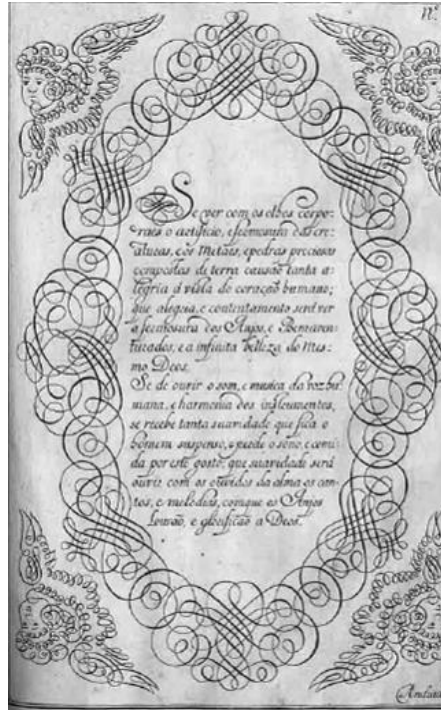 Nº
Se ver com os olhos corpo-
raes o artificio, e fermosura das cre-
aturas, e os Metaes, e pedras preciosas
compostas de terra causão tanta a-
legria á vista do coração humano;
que alegria, e contentamento será ver
a fermosura dos Anjos, e Bemaven-
turados, e a infinita belleza do Mes-
mo Deos.
Se de ouvir o som, e musica da voz hu-
mana, e harmonia dos instrumentos,
se recebe tanta suavidade que fica o
homem suspenso, e perde o sono, e comi-
da por este gosto; que suavidade será
ouvir com os ouvidos da alma os can-
tos, e melodias, com que os Anjos
louvão, e glorificão a Deos.